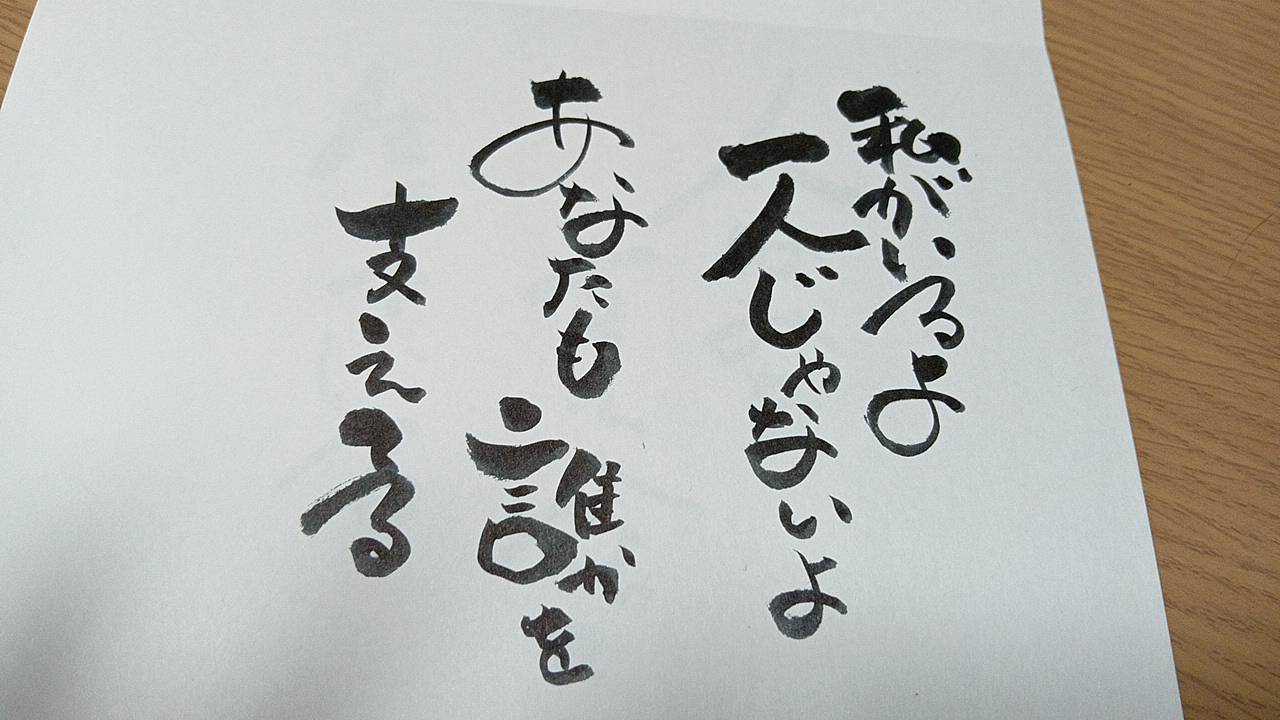 私がいるよ
一人じゃないよ
あなたも誰かを
支える